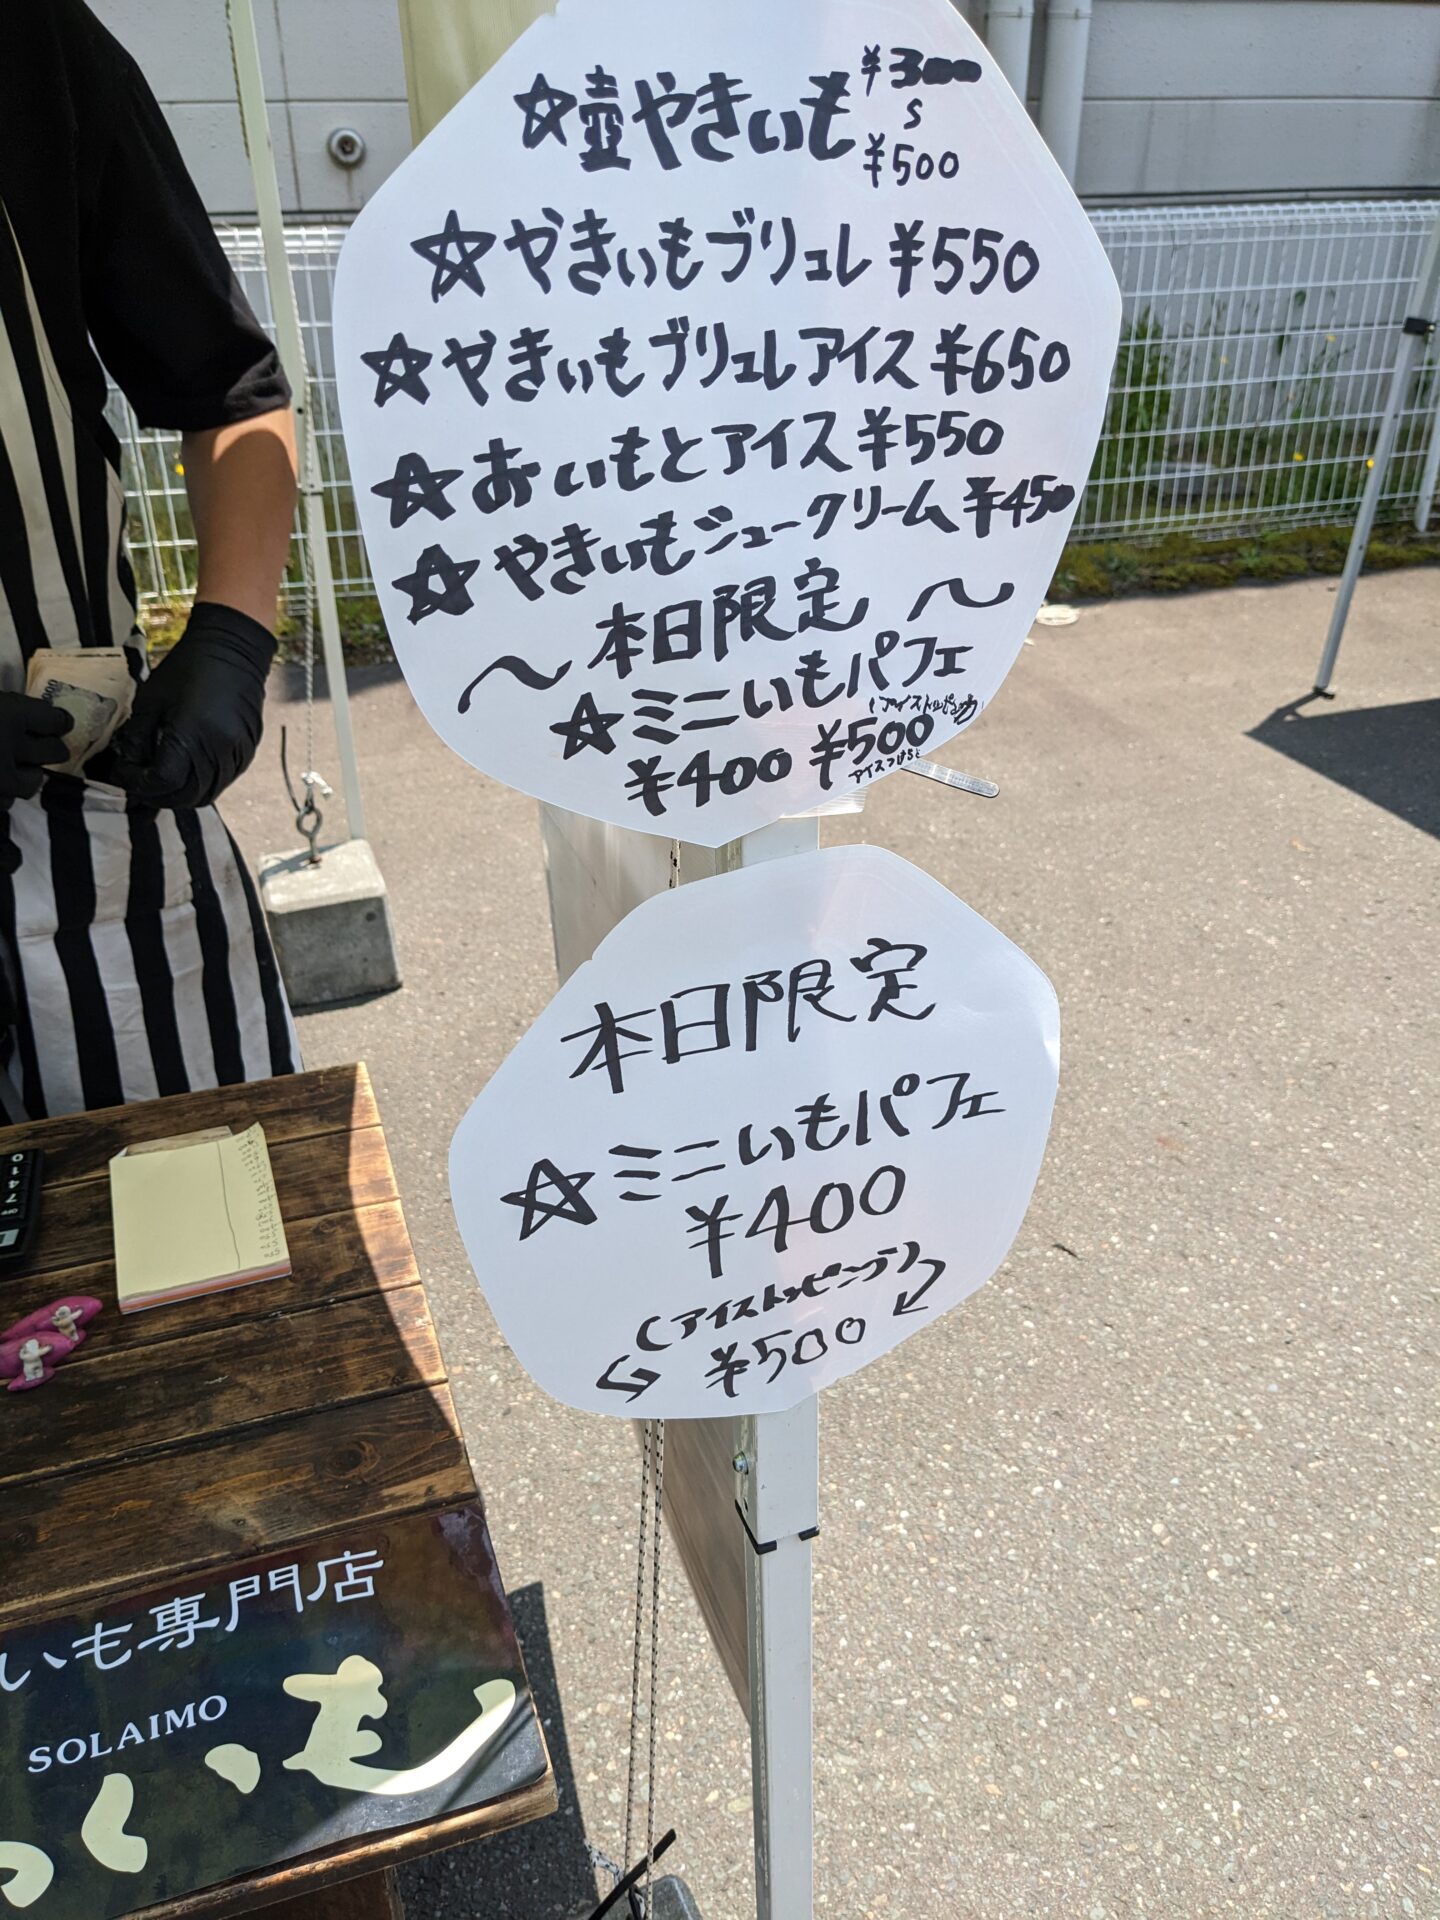 ☆壺やきいも ¥300
～
¥500
☆やきいもブリュレ ¥550
☆やきいもブリュレアイス ¥650
☆おいもとアイス ¥550
☆やきいもシュークリーム ¥450
～本日限定～
☆ミニいもパフェ
¥400 ¥500
本日限定
☆ミニいもパフェ
¥400
(アイストッピング)
¥500
いも専門店
SOLAIMO
いも